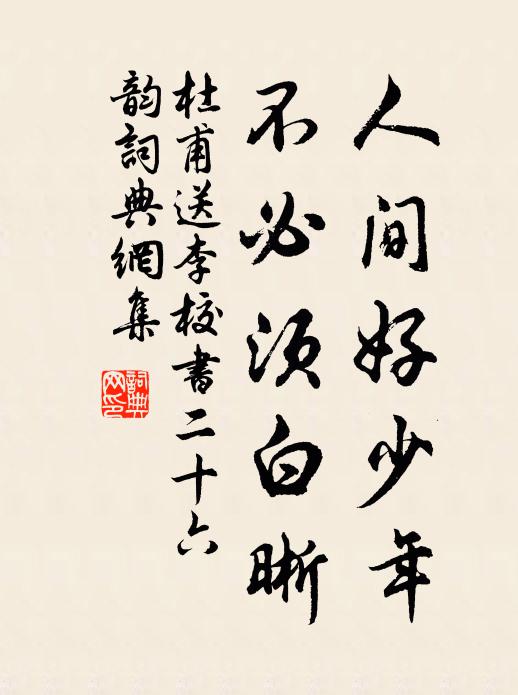 人間好少年
不必須白晰
杜甫送李校書二十六
韵詞典網集
詞典網印